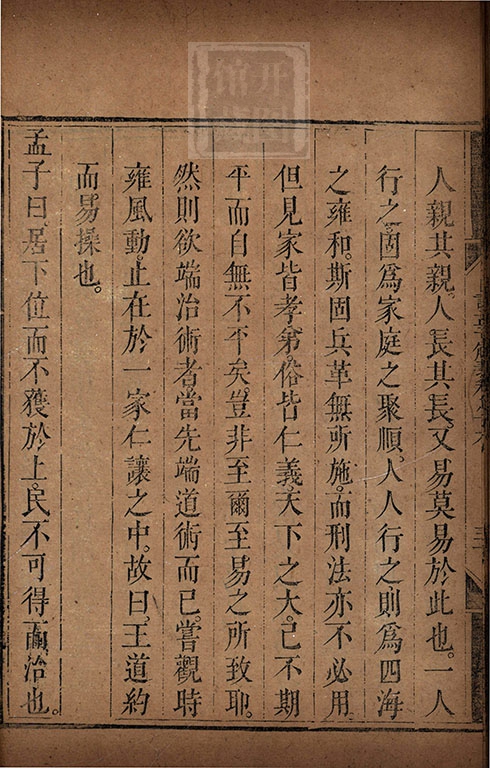 人親其親。人長其長。又易莫易於此也。一人
行之。固爲家庭之聚順。人人行之則爲四海
之雍和。斯固兵革無所施。而刑法亦不必用
但見家皆孝弟。俗皆仁義。天下之大。已不期
平而自無不平矣。豈非至爾至易之所致耶。
然則欲端治術者。當先端道術而已。嘗觀時
雍風動。止在於一家仁讓之中。故曰。王道約
而易操也。
孟子曰。居下位而不獲於上。民不可得而治也。